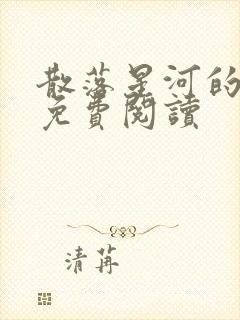 散落星河的
免費閱讀
清苒